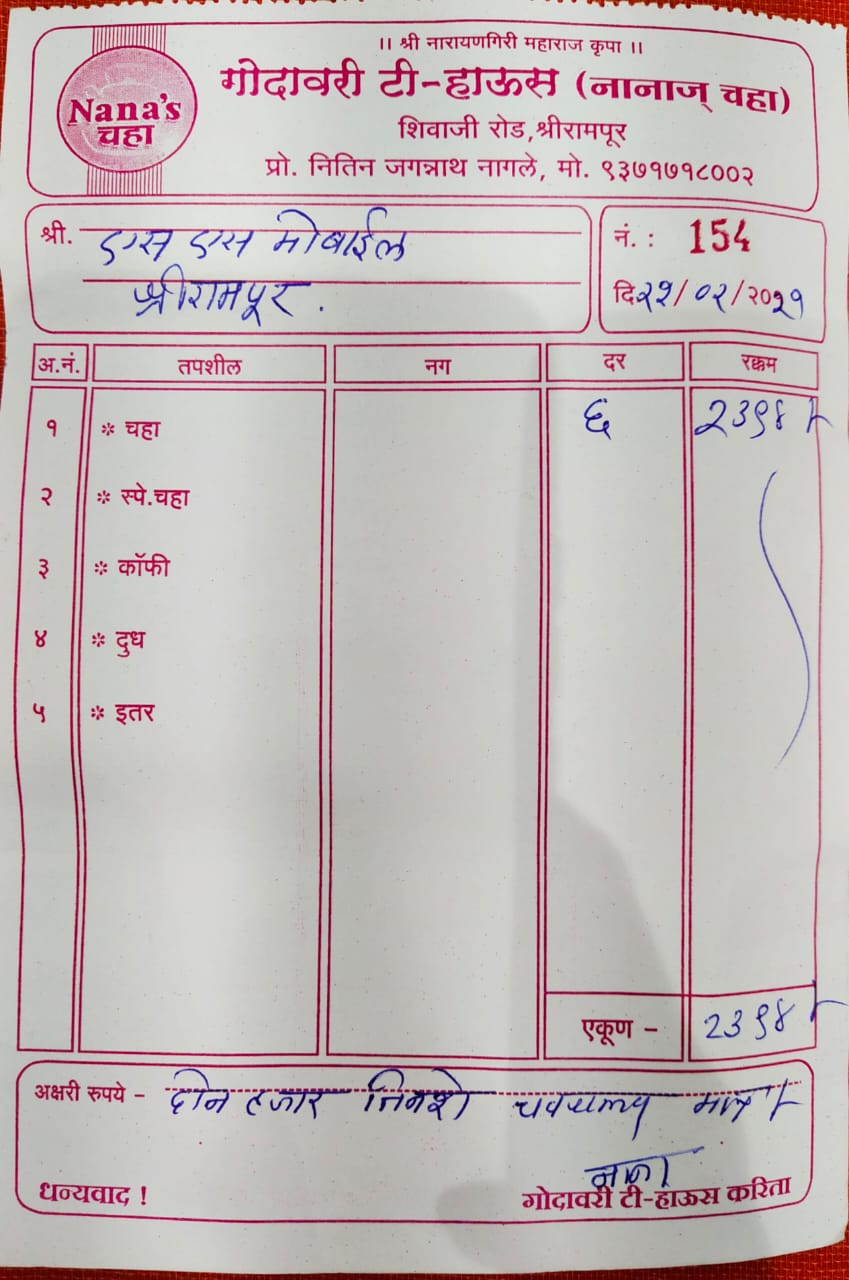 ।। श्री नारायणगिरी महाराज कृपा ।।
Nana's
चहा
गोदावरी टी-हाऊस (नानाज् चहा)
शिवाजी रोड,श्रीरामपूर
प्रो. नितिन जगन्नाथ नागले, मो. ९३७१७१८००२
श्री. एस एस मोबाईल
श्रीरामपूर.
नं. : 154
दि २२/०२/२०२१
अ.नं. तपशील नग दर रक्कम
१ * चहा ६ २३९४/-
२ * स्पे.चहा
३ * कॉफी
४ * दुध
५ * इतर
एकूण - २३९४/-
अक्षरी रुपये - दोन हजार तिनशे मात्र/-
धन्यवाद !
गोदावरी टी-हाऊस करिता